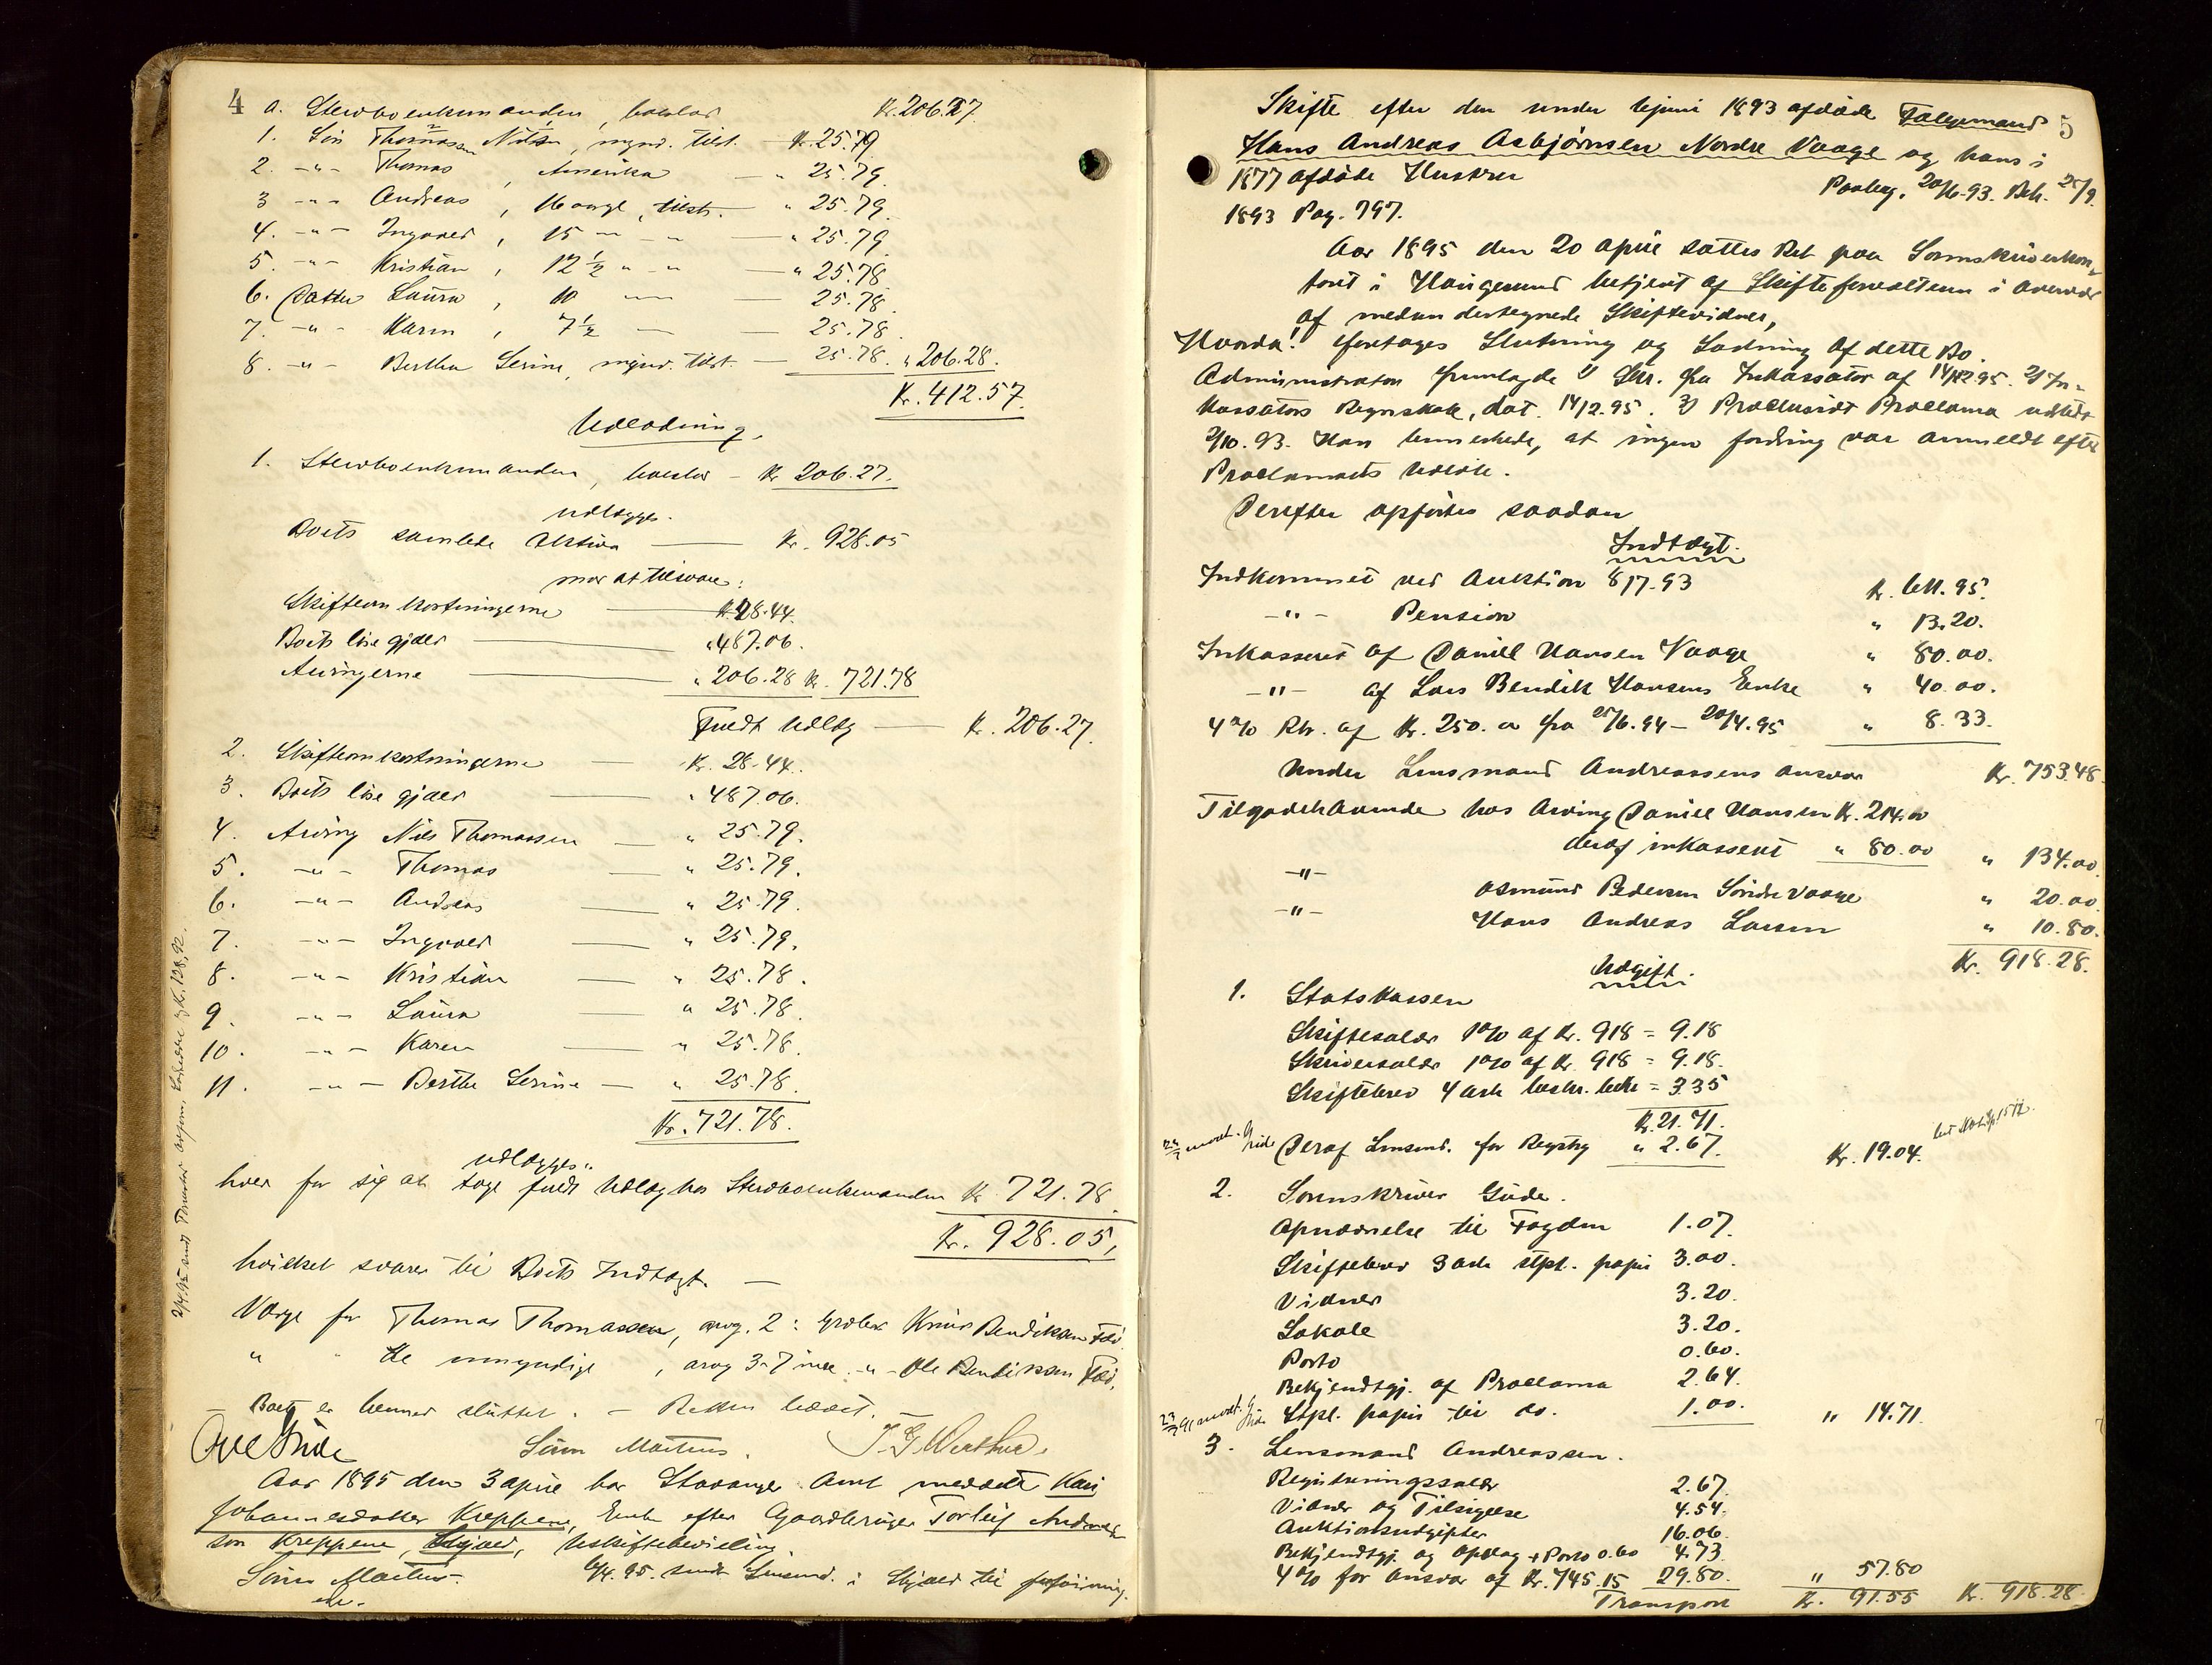 4
a. Stervboenkemanden, boeslod Kr. 206.27.
1. Søn Thomassen Nils, mynd. tilst. — Kr. 25.79
2. -"- Thomas, Amerika — " 25.79.
3 -"- Andreas, 16 aargl, tilst. — " 25.79.
4. -"- Ingvald, 15 — " — " — " 25.79.
5. -"- Kristian, 12 ½ " - " — " 25.78
6. Datter Laura, 10 — — 25.78.
7. -"- Karen, 7 ½ — — 25.78.
8. -"- Berthe Serine, mynd. tilst. — 25.78. " 206.28.
Kr. 412.57.
Udlodning.
1. Stervboenkemanden, boeslod — Kr 206.27.
udlægges.
Boets samlede Aktiva — Kr. 928.05
mod at tilsvare:
Skifteomkostningerne — Kr 28.44.
Boets løse gjæld — " 487.06.
Arvingerne — " 206.28 Kr. 721.78
Fuldt Udlæg — Kr. 206.27.
2. Skifteomkostningerne — Kr. 28.44.
3. Boets løse gjæld — " 487.06.
4. Arving Nils Thomassen — " 25.79.
5. -"- Thomas — " 25.79.
6. -"- Andreas — " 25.79.
7. -"- Ingvald — " 25.79.
8. -"- Kristian — " 25.78.
9. -"- Laura — " 25.78.
10. -"- Karen — " 25.78.
11. -"- Berthe Serine — " 25.78.
Kr. 721.78.
udlægges:
hver for sig at tage fuldt Udlæg hos Stervboenkemanden Kr 721.78.
Kr. 928.05,
hvilket svarer til Boets Indtægt. —
Værge for Thomas Thomassen, arvg. 2: Grdbr. Knud Bendiksen
" " de umyndige, arvg 3-7 incl. -"- Ole Bendiksen
— Boet er hermed sluttet. — Retten hævet. —
Ove Gude Søren Martens. T. G. Werthus.
Aar 1895 den 3 april har Stavanger Amt meddelt Kari
Johannesdatter Kreppene, Enke efter Gaardbruger Torleif Andreas-
sen Kreppene, Skjold, Uskiftebevilling.
Søren Martens. 6/4.95. sendt Lensmd. i Skjold til forføining.
5
Skifte efter den under 6 juni 1893 afdøde Følgemand
Hans Andreas Asbjørnsen Nordre Vaage og hans i
1877 afdøde Hustru Paabeg. 20/6-93. Beh. 25/9.
1893 Pag. 797.
Aar 1895 den 20 april sattes Ret paa Sorenskriverkon-
toret i Haugesund betjent af Skifteforvalteren i overvær
af medundertegnede Skiftevidner,
Hvorda! foretages Slutning og Lodning af dette Bo.
Administrator fremlagde 1) Skr. fra Inkassator af 14/12.95. 2) In-
kassators Regnskab, dat. 14/2.95. 3) Præclusivt Proclama udstedt
2/10.93. Han bemerkede, at ingen fordring var anmeldt efter
Proclamaets Udløb.
Derefter opførtes saadan
Indtægt.
Indkommet ved Auktion 8/7-93 Kr. 611.95.
-"- Pension " 13.20.
Inkasseret af Daniel Hansen Vaage " 80.00.
-"- af Lars Bendik Hansens Enke " 40.00.
4 % Rtr. af Kr. 250.00 fra 25/6.94 — 20/4.95 " 8.33.
Under Lensmand Andreassens ansvar Kr. 753.48.
Tilgodehavende hos Arving Daniel Hansen Kr. 214.00
deraf inkasseret " 80.00 " 134.00.
-"- Asmund Pedersen Søndre Vaage " 20.00.
-"- Hans Andreas Larsen " 10.80.
Kr. 918.28.
Udgift.
1. Statskassen
Skiftesalær 1 % af Kr. 918 = 9.18
Skriversalær 1 % af Kr. 918 = 9.18.
Skiftebrev 4 ark = 3.35
Kr. 21.71.
Deraf Lensmd. for Registrg " 2.67. Kr. 19.04.
2. Sorenskriver Gude.
Opnævnelse til Fogden 1.07.
Skiftebrev 3 ark stpl. papir 3.00.
Vidner 3.20.
Lokale 3.20.
Porto 0.60.
Bekjendtgj. af Proclama 2.64.
Stpl. papir til do. 1.00. " 14.71.
3. Lensmand Andreassen.
Registreringssalær 2.67.
Vidner og Tilsigelse 4.54.
Auktionsudgifter 16.06.
Bekjendtgj. og Opslag + Porto 0.60 4.73.
4 % for ansvar af Kr. 745.15 29.80. " 57.80
Transport Kr. 91.55 Kr. 918.28